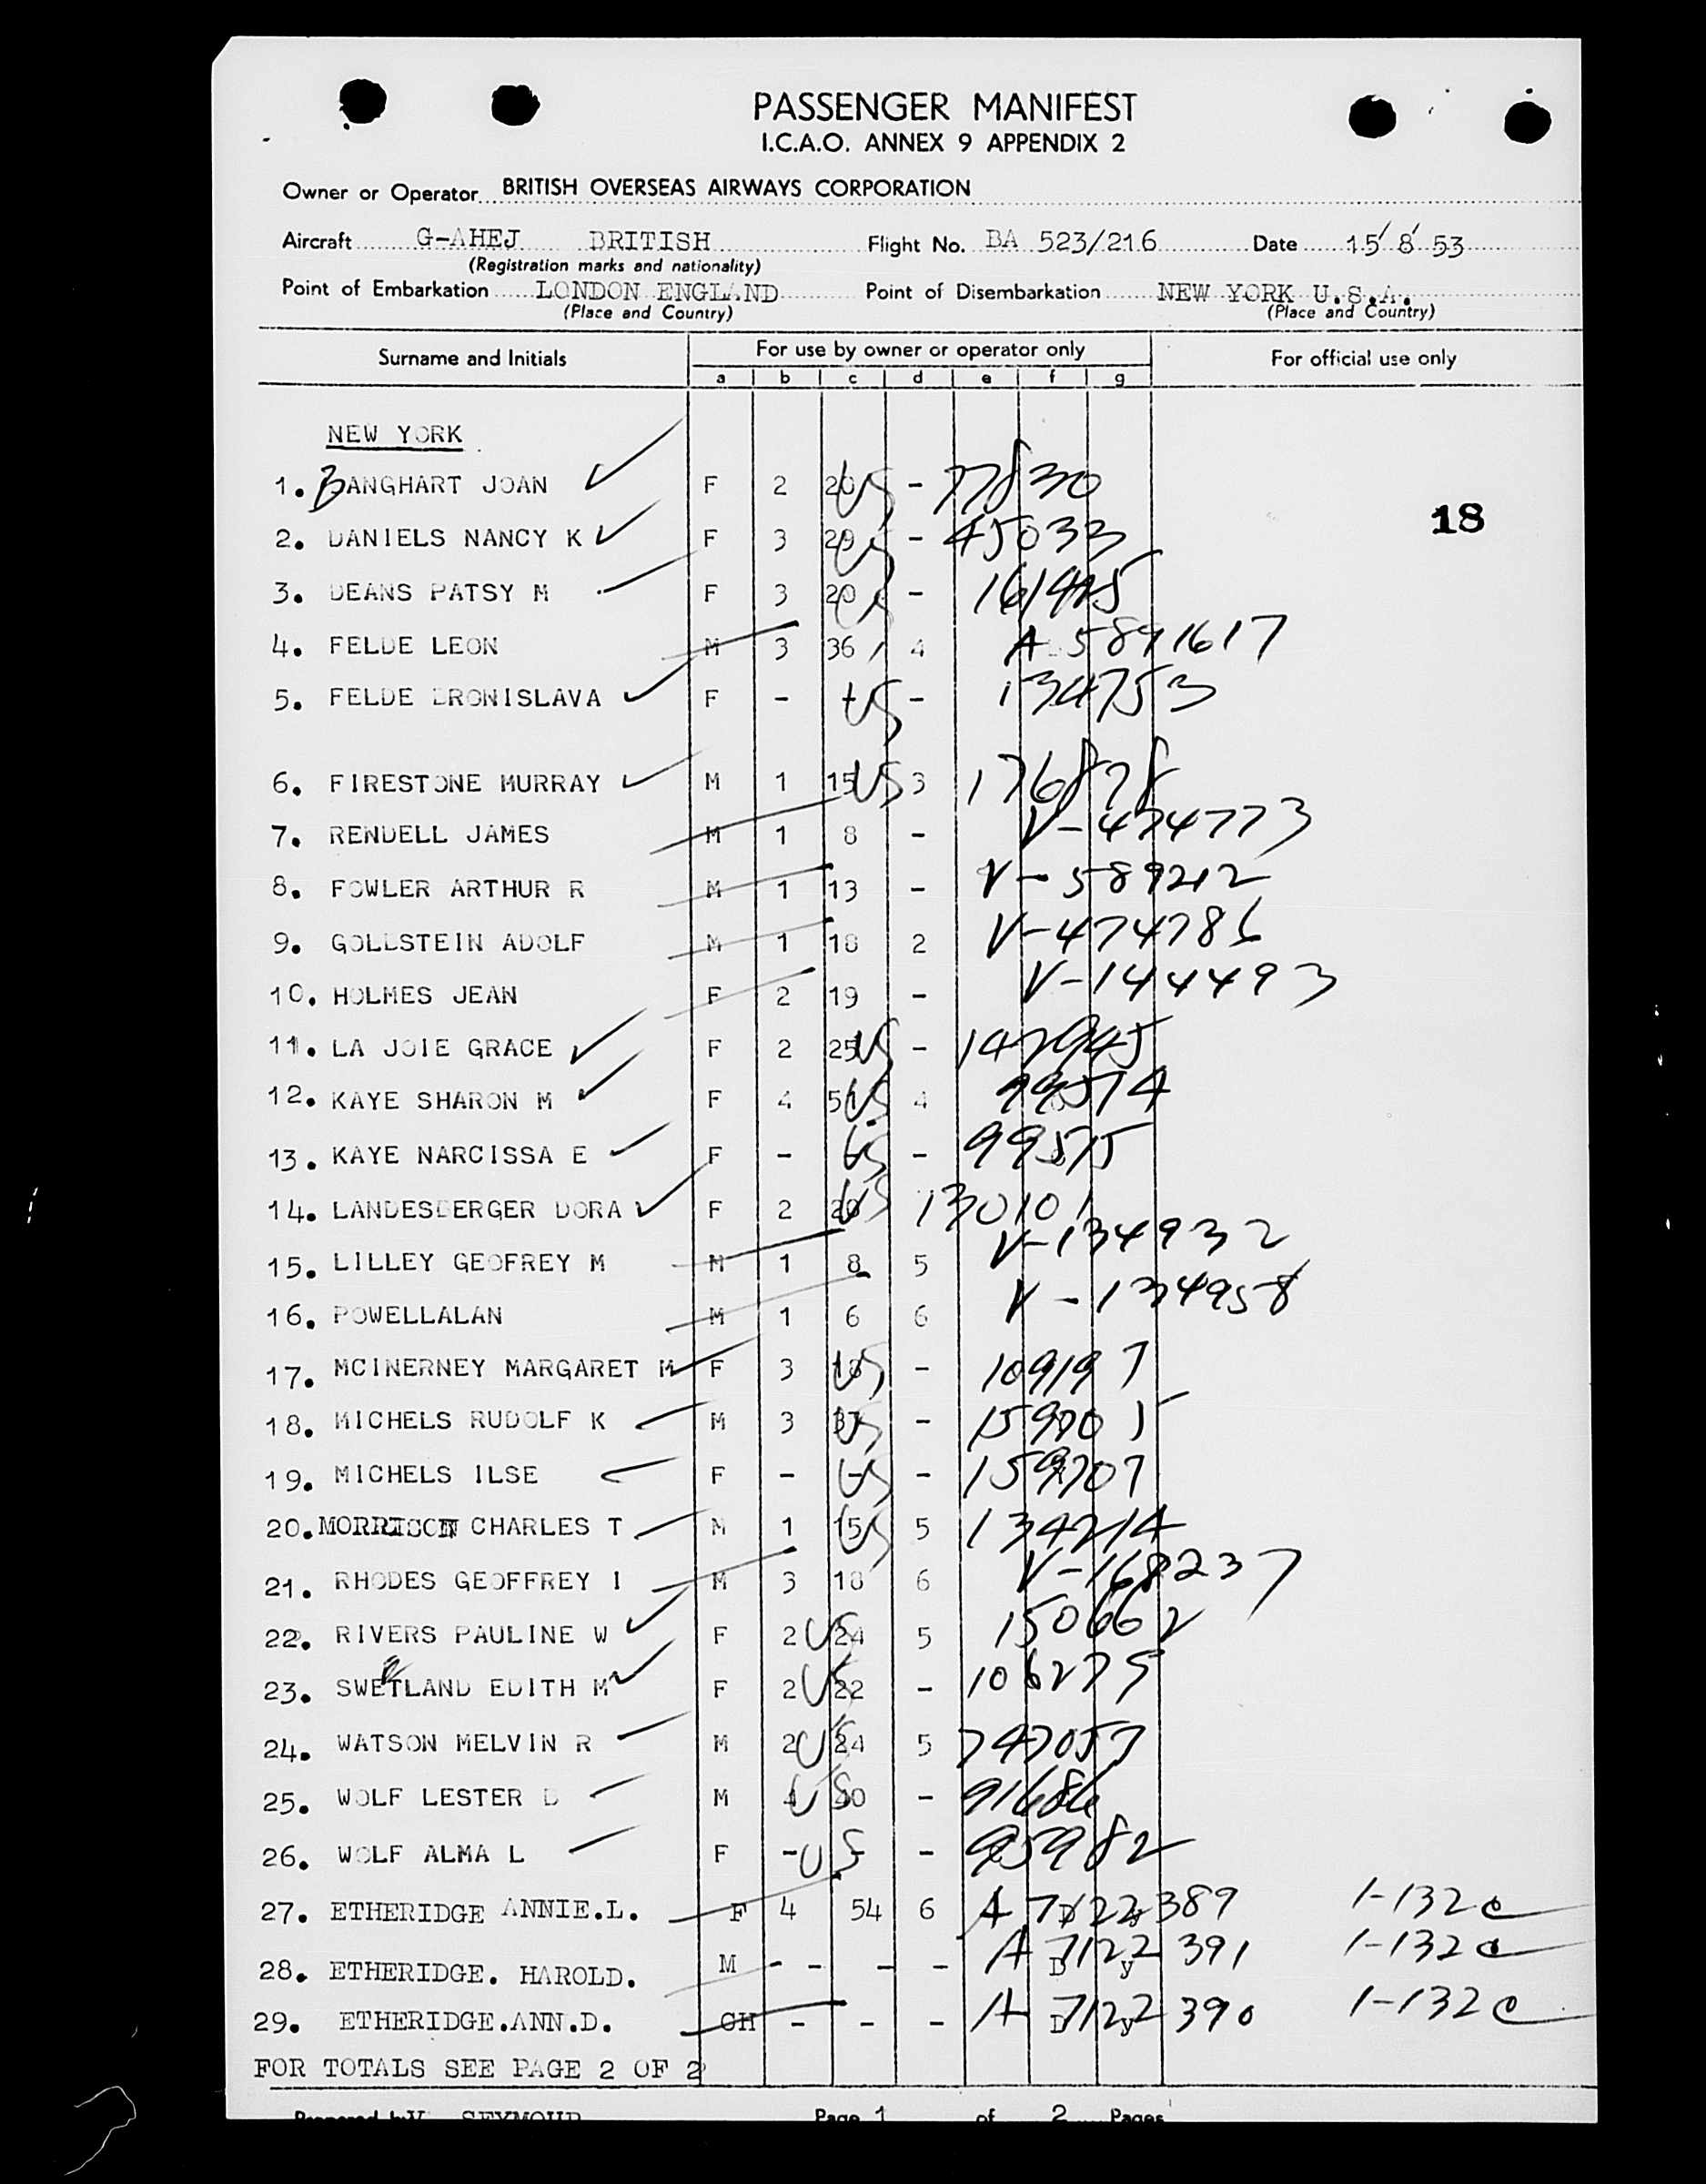 PASSENGER MANIFEST
I.C.A.O. ANNEX 9 APPENDIX 2
Owner or Operator BRITISH OVERSEAS AIRWAYS CORPORATION
Aircraft G-AHEJ BRITISH Flight No. BA 523/216 Date 15/8/53
(Registration marks and nationality)
Point of Embarkation LONDON ENGLAND Point of Disembarkation NEW YORK U.S.A.
(Place and Country) (Place and Country)
Surname and Initials For use by owner or operator only For official use only
a b c d e f g
NEW YORK
1. BANGHART JOAN F 2 20 US - 77830
18
2. DANIELS NANCY K F 3 29 US - 45033
3. DEANS PATSY M F 3 20 US -
4. FELDE LEON M 3 36 4 A 5891617
5. FELDE BRONISLAVA F - - US - 134753
6. FIRESTONE MURRAY M 1 15 US 3 176878
7. RENDELL JAMES M 1 8 - V-474773
8. FOWLER ARTHUR R M 1 13 - V-589212
9. GOLLSTEIN ADOLF M 1 18 2 V-474786
10. HOLMES JEAN F 2 19 - V-144493
11. LA JOIE GRACE F 2 25 US - 147945
12. KAYE SHARON M F 4 51 US 4 99574
13. KAYE NARCISSA E F - - US - 99575
14. LANDESBERGER DORA F 2 20 US 130101
15. LILLEY GEOFREY M M 1 8 5 V-134932
16. POWELLALAN M 1 6 6 V-134958
17. MCINERNEY MARGARET M F 3 18 US - 109197
18. MICHELS RUDOLF K M 3 37 US -
19. MICHELS ILSE F - - US - 159707
20. MORRISON CHARLES T M 1 15 US 5 134214
21. RHODES GEOFFREY I M 3 18 6 V-168237
22. RIVERS PAULINE W F 2 US 24 5 150662
23. SWETLAND EDITH M F 2 US 22 - 106275
24. WATSON MELVIN R M 2 US 24 5 747057
25. WOLF LESTER D M 4 US 40 - 91686
26. WOLF ALMA L F - US - - 95982
27. ETHERIDGE ANNIE.L. F 4 54 6 A 7122389 1-132c
28. ETHERIDGE. HAROLD. M - - - - A 7122391 1-132c
29. ETHERIDGE.ANN.D. CH - - - A 7122390 1-132c
FOR TOTALS SEE PAGE 2 OF 2
Prepared by SEYMOUR Page 1 of 2 Pages